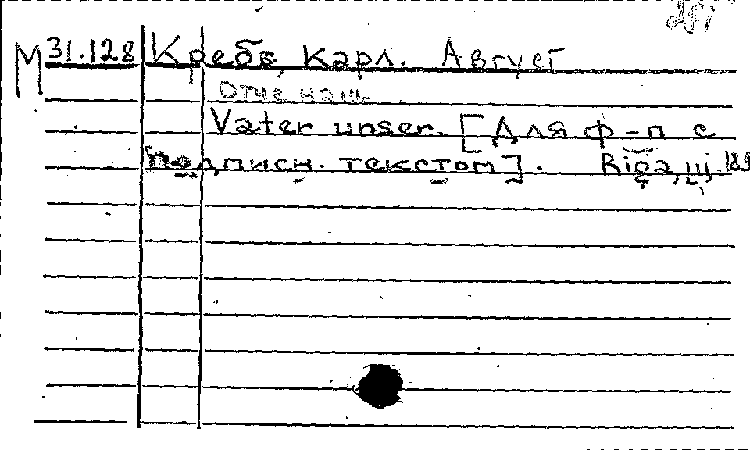 М 31.128 Кребс, Карл. Август
Отче наш.
Vater unser. [Для ф-п с
подписн. текстом]. Riga,